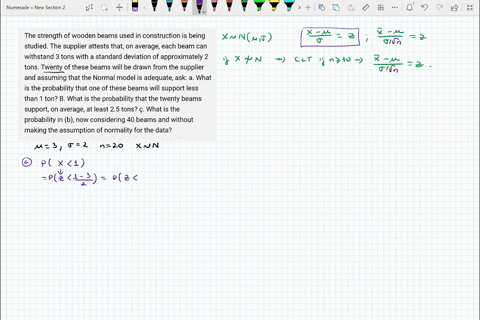 Numerade » New Section 2
The strength of wooden beams used in construction is being
studied. The supplier attests that, on average, each beam can
withstand 3 tons with a standard deviation of approximately 2
tons. Twenty of these beams will be drawn from the supplier
and assuming that the Normal model is adequate, ask: a. What
is the probability that one of these beams will support less
than 1 ton? B. What is the probability that the twenty beams
support, on average, at least 2.5 tons? ç. What is the
probability in (b), now considering 40 beams and without
making the assumption of normality for the data?
X~N(μ,σ) (x-μ)/σ = z ; (x̄-μ)/(σ/√n) = z
if X≁N → CLT if n≥30 → (x̄-μ)/(σ/√n) = z.
μ=3, σ=2 n=20 X~N
ⓐ P( X<1)
=P(z < (1-3)/2) = P(z <